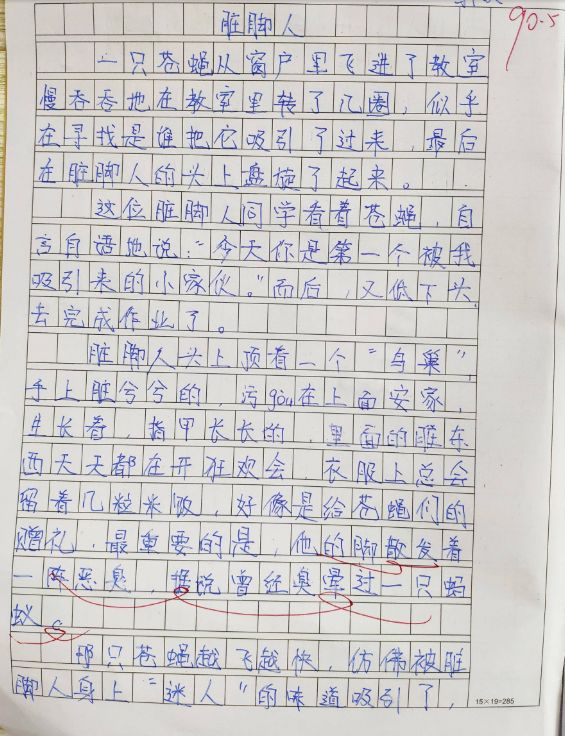 90.5
脏脚人
一只苍蝇从窗户里飞进了教室
慢吞吞地在教室里转了几圈，似乎
在寻找是谁把它吸引了过来，最后
在脏脚人的头上盘旋了起来。
这位脏脚人同学看着苍蝇，自
言自语地说：“今天你是第一个被我
吸引来的小家伙。”而后，又低下头，
去完成作业了。
脏脚人头上顶着一个“鸟巢”，
手上脏兮兮的，污gòu在上面安家，
生长着，指甲长长的，里面的脏东
西天天都在开狂欢会，衣服上总会
留着几粒米饭，好像是给苍蝇们的
赠礼，最重要的是，他的脚散发着
一阵恶臭，据说曾经臭晕过一只蚂
蚁。
那只苍蝇越飞越快，仿佛被脏
脚人身上“迷人”的味道吸引了，
15×19=285